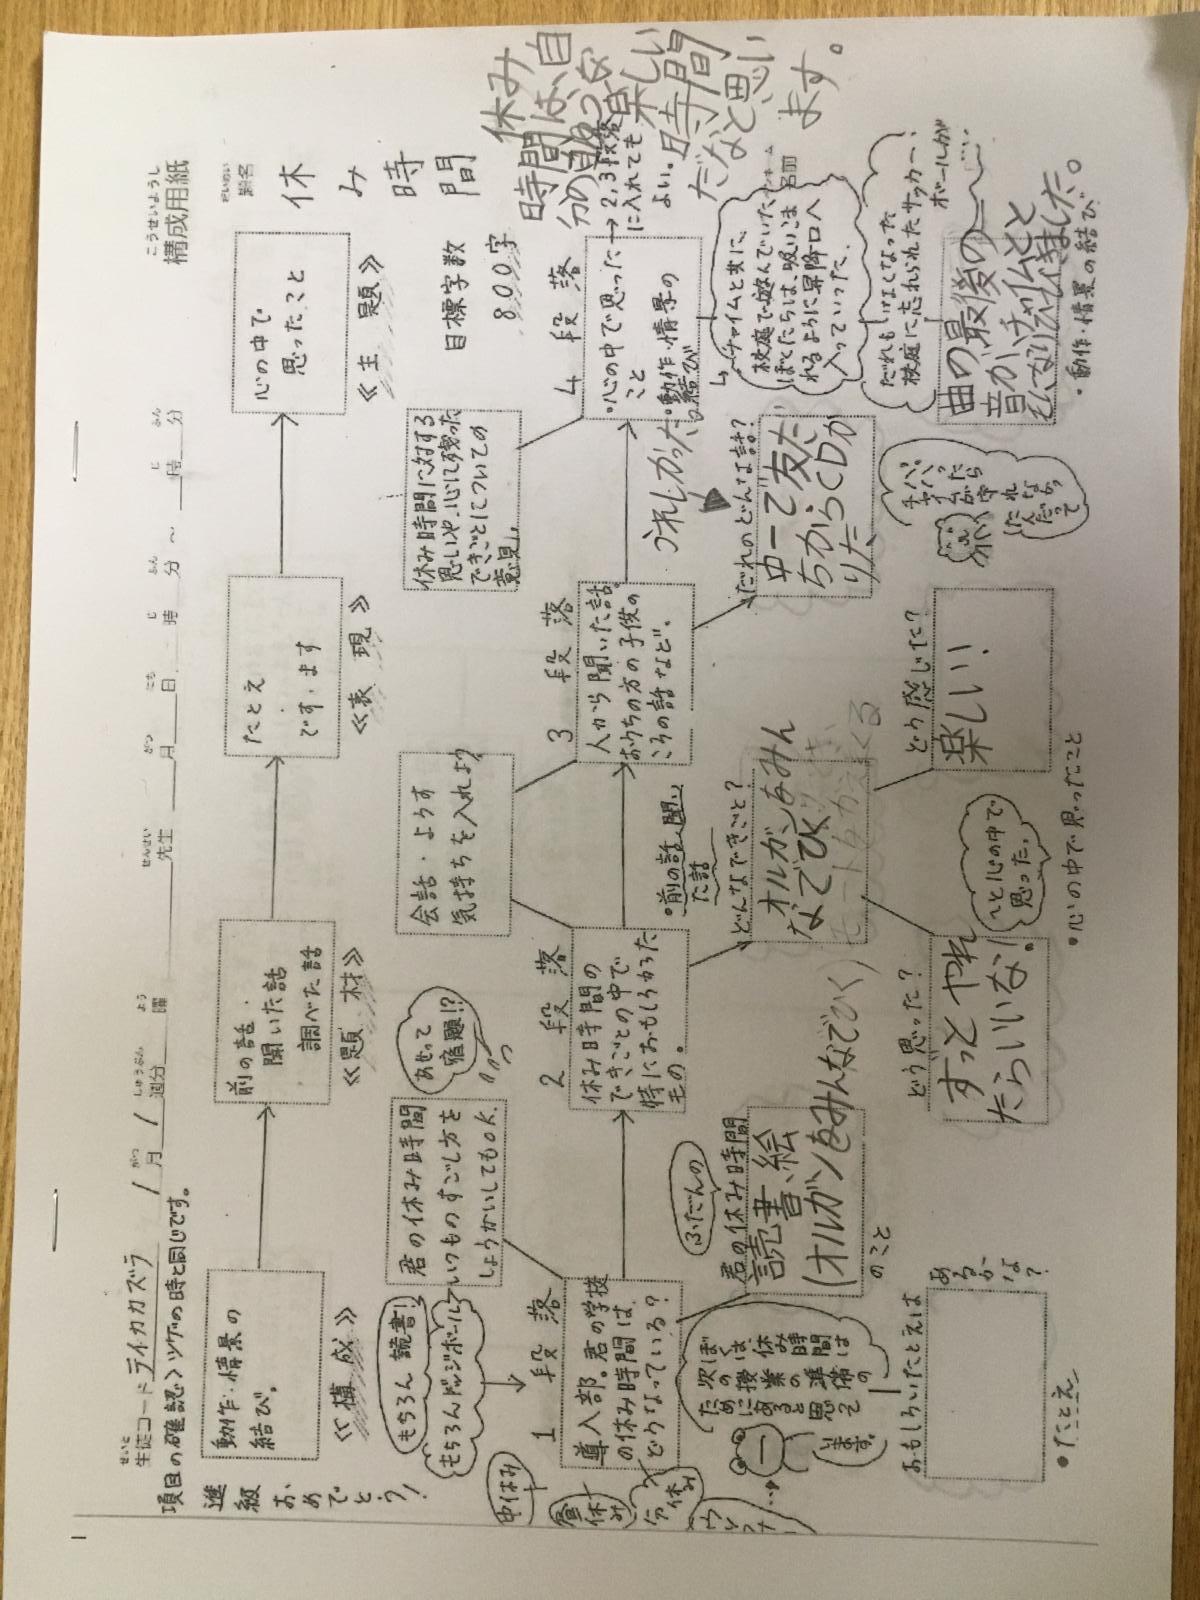 こうせいようし
構成用紙
だいめい
題名
休み時間
せいと
生徒コード ライカカズラ
1月1週分
曜
先生
月
日
時
分
～
時
分
項目の確認〉ツゲの時と同じです。
進級おめでとう!
動作・情景の
結び。
≪構成≫
前の話
聞いた話
調べた話
≪題材≫
たとえ
です・ます
≪表現≫
心の中で
思ったこと
≪主題≫
目標字数
800字
もちろん読書!
もちろんドッジボール
君の休み時間
いつものすごし方を
しょうかいしてもOK.
あせって
宿題!?
会話・ようす
気持ちを入れよう
休み時間に対する
思いや、心に残った
できごとについての
意見」
中休み
昼休み
1段落
導入部。君の学校
の休み時間は、
どうなっている?
2段落
休み時間の
できごとの中で
特におもしろかった
もの。
3段落
人から聞いた話。
おうちの方の子供の
ころの話など。
4段落
・心の中で思った
こと
・動作・情景の
結び
→2,3段落
に入れても
よい。
休み
時間は、自
分の
楽しい
時間
だなと思い
ます。
ふだんの
君の休み時間
読書、絵
(オルガンをみんなでひく)
のこと
・前の話、聞い
た話
どんなできごと?
オルガンをみん
なでひく
うれしかった
だれのどんな話?
中一で友だ
ちからCDか
りた
チャイムと共に、
校庭で遊んでいた
ぼくたちは、吸いこま
れるように昇降口へ
入っていった。
だれもいなくなった
校庭に忘れられたサッカー
ボールが
次のぼくは、
授業の準備の
ために休み時間は
あると思って
います。
おもしろいたとえは
あるかな?
・たとえ
どう思った?
ずっとやれ
たらいいな!
〜と心の中で
思った。
どう感じた?
楽しい!
・心の中で思ったこと
曲の最後の
音が、チャイムと
・動作・情景の結び